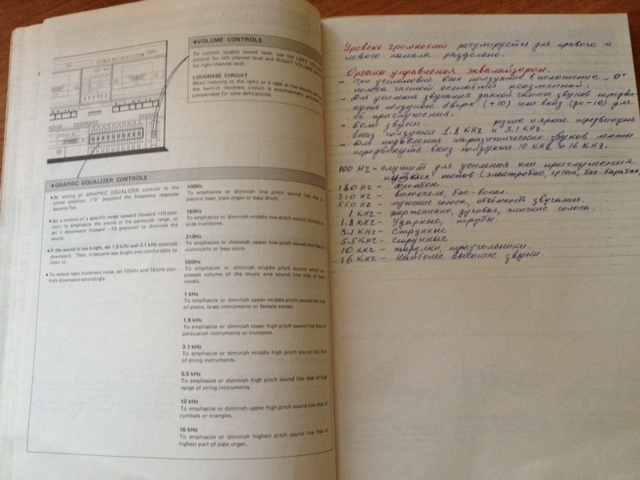 ●VOLUME CONTROLS
To control output sound level, use the LEFT VOLUME
control for left channel level and RIGHT VOLUME
for right channel level.
LOUDNESS CIRCUIT
When listening to the radio or a tape at low volume
the built-in loudness circuit is automatically
compensate for tone deficiency.
●GRAPHIC EQUALIZER CONTROLS
●By setting all GRAPHIC EQUALIZER controls to the
center position, ("0" position) the frequency response
become flat.
●Set a control of a specific range upward (toward +10 position)
to emphasize the sound in the particular range, or
set it downward (toward -10 position) to diminish the
sound.
●If the sound is too bright, set 1.8 kHz and 3.1 kHz controls
downward. Then, it become less bright and comfortable to
listen to.
●To reduce tape hiss noise, set 10 kHz and 16 kHz controls
downward accordingly.
100Hz
To emphasize or diminish low pitch sound like that of
electric base, pipe organ or bass drum.
180Hz
To emphasize or diminish middle low pitch sound like that of
slide trombone.
310Hz
To emphasize or diminish upper low pitch sound like that of
violoncello or bass voice.
550Hz
To emphasize or diminish middle pitch sound which expresses
volume of the music and sound like that of male
vocals.
1 kHz
To emphasize or diminish upper middle pitch sound like that
of piano, brass instruments or female vocals.
1.8 kHz
To emphasize or diminish lower high pitch sound like that of
percussion instruments or trumpets.
3.1 kHz
To emphasize or diminish middle high pitch sound like that
of string instruments.
5.5 kHz
To emphasize or diminish high pitch sound like that of high
range of string instruments.
10 kHz
To emphasize or diminish upper high pitch sound like that of
cymbals or triangles.
16 kHz
To emphasize or diminish highest pitch sound like that of
highest part of pipe organ.
Уровень громкости регулируется для правого и
левого канала раздельно.
Органы управления эквалайзером.
- При установке всех ползунков в положение „0"
полоса частот остаётся неизменной.
- для усиления звучания данной полосы звуков передвинуть
ползунок вверх (+10) или вниз (до -10) для
её приглушения.
- если звуки резко и ярко передвинуть
вниз ползунки 1.8 KHz и 3.1 KHz.
- для подавления паразитических звуков можно
передвинуть вниз ползунки 10 KHz и 16 KHz.
100 Hz - служит для усиления или приглушения
низких тонов (электробас, орган, бас-барабан)
180 Hz - тромбон
310 Hz - виолончель, бас-вокал.
550 Hz - мужские голоса, объёмность звучания.
1 KHz - фортепиано, духовые, женские голоса.
1.8 KHz - Ударные, трубы.
3.1 KHz - Струнные
5.5 KHz - Струнные
10 KHz - тарелки, треугольники.
16 KHz - Наиболее высокие звуки.